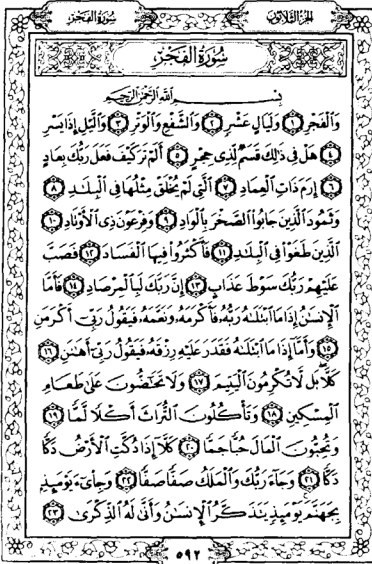 سُورَةُ الفَجْرِ
الجزءُ الثلاثون
سُورَةُ الفَجْرِ
بِسْمِ اللَّهِ الرَّحْمَٰنِ الرَّحِيمِ
وَالْفَجْرِ ۝١ وَلَيَالٍ عَشْرٍ ۝٢ وَالشَّفْعِ وَالْوَتْرِ ۝٣ وَالَّيْلِ إِذَا يَسْرِ
۝٤ هَلْ فِي ذَٰلِكَ قَسَمٌ لِّذِي حِجْرٍ ۝٥ أَلَمْ تَرَ كَيْفَ فَعَلَ رَبُّكَ بِعَادٍ
۝٦ إِرَمَ ذَاتِ الْعِمَادِ ۝٧ الَّتِي لَمْ يُخْلَقْ مِثْلُهَا فِي الْبِلَٰدِ ۝٨
وَثَمُودَ الَّذِينَ جَابُوا الصَّخْرَ بِالْوَادِ ۝٩ وَفِرْعَوْنَ ذِي الْأَوْتَادِ ۝١٠
الَّذِينَ طَغَوْا فِي الْبِلَٰدِ ۝١١ فَأَكْثَرُوا فِيهَا الْفَسَادَ ۝١٢ فَصَبَّ
عَلَيْهِمْ رَبُّكَ سَوْطَ عَذَابٍ ۝١٣ إِنَّ رَبَّكَ لَبِالْمِرْصَادِ ۝١٤ فَأَمَّا
الْإِنسَٰنُ إِذَا مَا ابْتَلَىٰهُ رَبُّهُ فَأَكْرَمَهُ وَنَعَّمَهُ فَيَقُولُ رَبِّي أَكْرَمَنِ
۝١٥ وَأَمَّا إِذَا مَا ابْتَلَىٰهُ فَقَدَرَ عَلَيْهِ رِزْقَهُ فَيَقُولُ رَبِّي أَهَٰنَنِ ۝١٦
كَلَّا بَل لَّا تُكْرِمُونَ الْيَتِيمَ ۝١٧ وَلَا تَحَٰضُّونَ عَلَىٰ طَعَامِ
الْمِسْكِينِ ۝١٨ وَتَأْكُلُونَ التُّرَاثَ أَكْلًا لَّمًّا ۝١٩
وَتُحِبُّونَ الْمَالَ حُبًّا جَمًّا ۝٢٠ كَلَّا إِذَا دُكَّتِ الْأَرْضُ دَكًّا
دَكًّا ۝٢١ وَجَاءَ رَبُّكَ وَالْمَلَكُ صَفًّا صَفًّا ۝٢٢ وَجِاْيءَ يَوْمَئِذٍ
بِجَهَنَّمَ يَوْمَئِذٍ يَتَذَكَّرُ الْإِنسَٰنُ وَأَنَّىٰ لَهُ الذِّكْرَىٰ ۝٢٣
٥٩٢